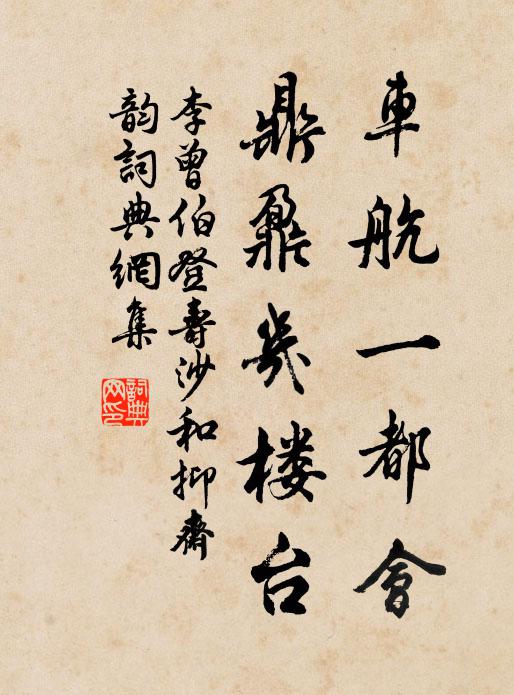 車航一都會
鼎鼐幾楼台
李曾伯登壽沙和抑齋
韵詞典網集
詞典網印